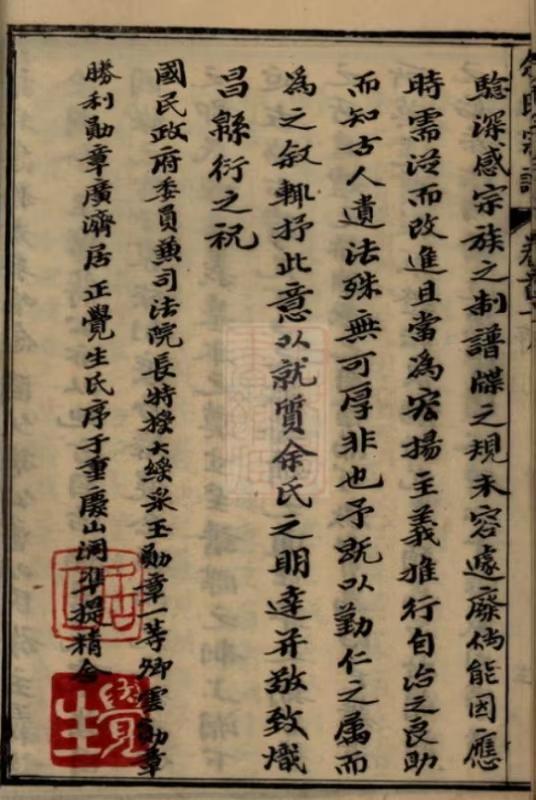 驗深感宗族之制譜牒之規未容遽廢倘能因應
時需從而改進且當為宏揚主義推行自治之良助
而知古人遺法殊無可厚非也予既以勤仁之屬而
為之叙輒抒此意以就質余氏之明達并敬致熾
昌緜衍之祝
國民政府委員兼司法院長特授大綬采玉勛章一等卿雲勛章
勝利勛章廣濟居正覺生氏序于重慶山洞準提精舍
居正
覺生